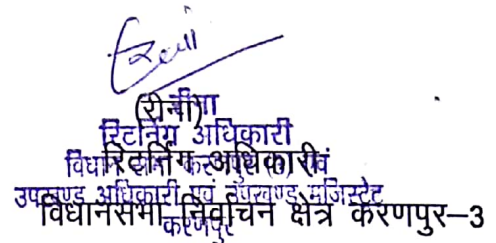 (रीना)
रिटर्निंग अधिकारी
रिटर्निंग अधिकारी
उपखण्ड अधिकारी एवं उपखण्ड मजिस्ट्रेट
विधानसभा निर्वाचन क्षेत्र करणपुर–3
करणपुर